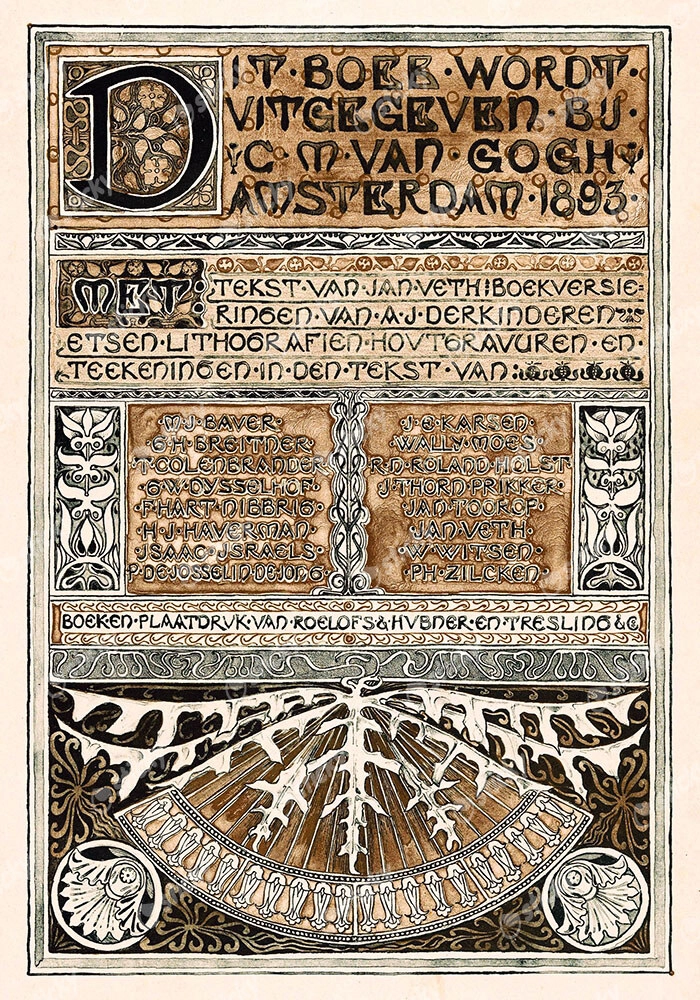 DIT · BOEK · WORDT ·
VITGEGEVEN · BIJ ·
C · M · VAN · GOGH
AMSTERDAM · 1893 ·
MET: TEKST · VAN · JAN · VETH: BOEKVERSIE=
RINGEN · VAN · A · J · DERKINDEREN
ETSEN · LITHOGRAFIEN · HOVTGRAVUREN · EN ·
TEEKENINGEN · IN · DEN · TEKST · VAN:
· M · J · BAVER ·
· G · H · BREITNER ·
· T · COLENBRANDER ·
· G · W · DYSSELHOF ·
· F · HART · NIBBRIG ·
· H · J · HAVERMAN ·
· JSAAC · JSRAELS ·
· P · DE · JOSSELIN · DE · JONG ·
· J · E · KARSEN ·
· WALLY · MOES ·
· R · N · ROLAND · HOLST ·
· J · THORN · PRIKKER ·
· JAN · TOOROP ·
· JAN · VETH ·
· W · WITSEN ·
· PH · ZILCKEN ·
BOEK · EN · PLAATDRUK · VAN · ROELOFS & HVBNER · EN · TRESLING & C°